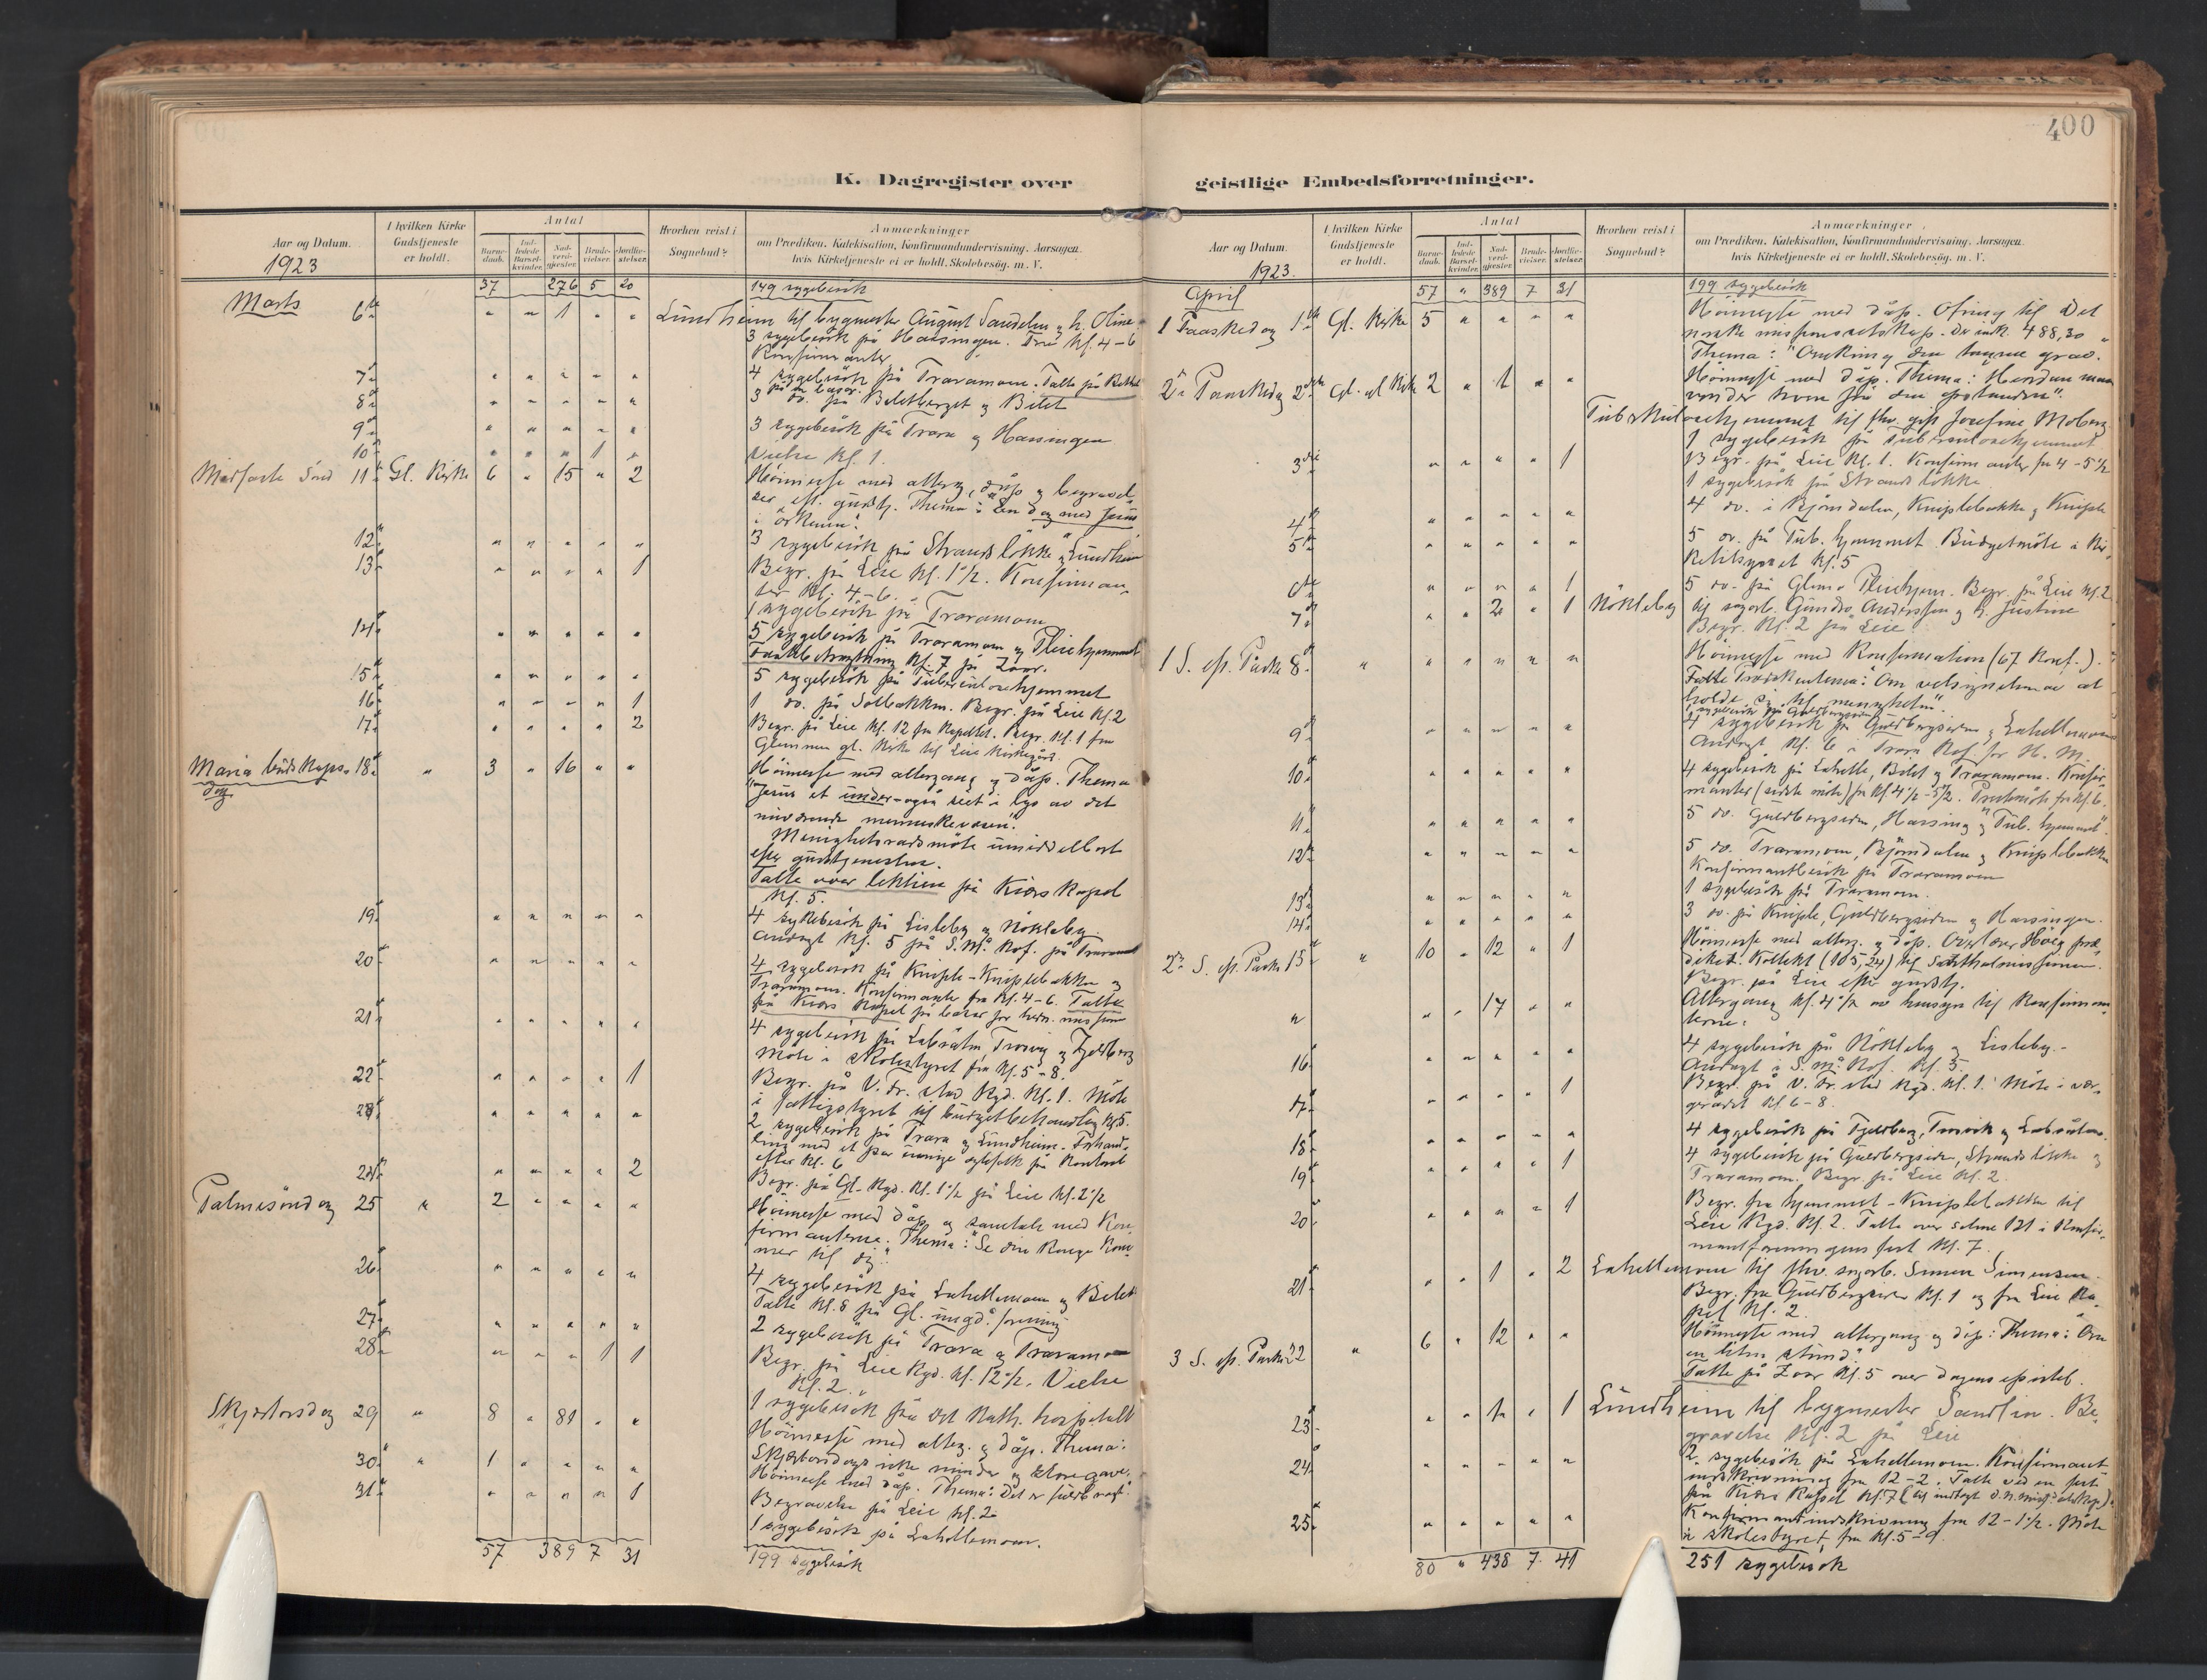 400
K. Dagregister over geistlige Embedsforretninger.
Aar og Datum. 1923
I hvilken Kirke Gudstjeneste er holdt.
Antal
Barne-daab. Ind-ledede Barsel-kvinder. Nad-verd-gjester. Brude-vielser. Jordfæ-stelser.
Hvorhen reist i Sognebud?
Anmærkninger
om Prædiken, Katekisation, Konfirmandundervisning, Aarsagen,
hvis Kirketjeneste ei er holdt, Skolebesøg, m. V.
37 276 5 20 149 sygebesök
Marts 6te " " 1 " " Lundheim til bygmester August Sandelin og h. Oline
3 sygebesök på Hassingen. Fra Kl. 4-6
Konfirmanter
7. " " " " " 4 sygebesök på Traramoen. Talte på Betel
på en basar.
8. " " " " " 3 do. på Biletberget og Bilet
9. " " " " " 3 sygebesök på Trara og Hassingen
10. " " " 1 " Vielse Kl. 1.
Midfaste Sönd 11t Gl. Kirke 6 " 15 " 2 Höimesse med alterg., dåp og begravel-
ser eft. gudstj. Thema: En dag med Jesus
i örkenen.
12. " " " " " 3 sygebesök på Strandlökka og Lundheim
13. " " " " 1 Begr. på Leie Kl. 1 1/2. Konfirman-
ter Kl. 4-6.
1 sygebesök på Traramoen
14. " " " " " 5 sygebesök på Traramoen og Pleiehjemmet
Kl. 7 på Zoar.
15. " " " " " 5 sygebesök på Tuberculosehjemmet
16. " " " " 1 1 do. på Solbakken. Begr. på Leie Kl. 2
17. " " " " 2 Begr. på Leie Kl. 12 fra Kapellet. Begr. Kl. 1 fra
Glemmen gl. Kirke til Leie Kirkegård.
Maria budskaps-dag 18. " 3 " 16 " " Höimesse med altergang og dåp. Thema
"Jesus et under - også seet i lys av det
nuværende menneskevæsen".
Menighetsrådsmöte umiddelbart
efter gudstjenesten.
Talte over lektien på Kiærs Kapel
Kl. 5.
19. " " " " " 4 sykebesök på Lisleby og Nökleby.
Andagt Kl. 5 på S. M. Kof. på Traramoen
20. " " " " " 4 sygebesök på Kniple-Kniplebakken og
Traramoen. Konfirmanter fra Kl. 4-6. Talte
på Kiærs Kapel på basar for hedn. missjon
21. " " " " " 4 sygebesök på Labråten, Trosvig og Fjeldberg
Möte i skolestyret fra Kl. 5-8.
22. " " " " 1 Begr. på V. Fr.stad Kgd. Kl. 1. Möte
i fattigstyret til budgetbehandling Kl. 5.
23. " " " " " 2 sygebesök på Trara og Lundheim. Forhand-
ling med et par uenige egtefolk på Kontoret
efter Kl. 6
24. " " " " 2 Begr. på Gl. Kgd. Kl. 1 1/2 på Leie Kl. 2 1/2
Palmesöndag 25 " 2 " " " " Höimesse med dåp og samtale med Kon-
firmanterne. Thema: "Se din Konge Kom-
mer til dig".
26. " " " " " 4 sygebesök på Lahellemoen og Bilet
Talte Kl. 8 på Gl. ungd. forening
27. " " " " " 2 sygebesök på Trara og Traramoen
28. " " " 1 1 Begr. på Leie Kgd. Kl. 12 1/2. Vielse
Kl. 2.
1 sygebesök på det Kath. hospitalet
Skjærtorsdag 29 " 8 " 81 " " Höimesse med alterg. og dåp. Thema:
Skjærtorsdags rike minder og store gave.
30. " 1 " " " " Höimesse med dåp. Thema: Det er fuldbragt.
31. " " " " 1 Begravelse på Leie Kl. 2
1 sygebesök på Lahellemoen.
57 389 7 31 199 sygebesök
Aar og Datum. 1923.
I hvilken Kirke Gudstjeneste er holdt.
Antal
Barne-daab. Ind-ledede Barsel-kvinder. Nad-verd-gjester. Brude-vielser. Jordfæ-stelser.
Hvorhen reist i Sognebud?
Anmærkninger
om Prædiken, Katekisation, Konfirmandundervisning, Aarsagen,
hvis Kirketjeneste ei er holdt, Skolebesøg, m. V.
57 " 389 7 31 199 sygebesök
April
1 Paaskedag 1ste Gl. Kirke 5 " " " " Höimesse med dåp. Ofring til Det
norske missionsselskap. Der indk. 488,30
Thema: "Omkring den tomme grav.
2. Paaskedag 2den Gl. Gl. Kirke 2 " 1 " " Höimesse med dåp. Thema: Hvordan man
vender hjem fra den opstandne".
Tuberkulosehjemmet til fhv. gift Josefine Moberg
1 sygebesök på Tuberculosehjemmet
3die " " " " 1 Begr. på Leie Kl. 1. Konfirmanter fra 4-5 1/2
1 sygebesök på Strandlökka
4. " " " " " 4 do. i Bjørndalen, Kniplebakken og Kniple
5. " " " " " 5 do. på Tub. hjemmet. Budgetmöte i
Kl. 5
6te " " " " 1 5 do. på Glemm. Pleiehjem. Begr. på Leie Kl. 2
7. " " 2 " 1 Nökleby til sagarb. Andersen og h. Justine
Begr. Kl. 2 på Leie.
1 S. eft. Paaske 8. " " " " " " Höimesse med Konfirmation (67 Konf.).
Talte Thema: Om velsignelsen av at
holde sig til menigheten".
1 sygebesök på Guldbergsiden
9. " " " " " 4 sygebesök på Guldbergsiden og Lahellemoen
Andagt Kl. 6 i Trara Kof for H. M.
10. " " " " " 4 sygebesök på Lahelle, Bilet og Traramoen. Konfir-
manter (sidste möte) fra Kl. 4 1/2-5 1/2. fra Kl. 6.
11. " " " " " 5 do. Guldbergsiden, Hassing og Tub. hjemmet.
12. " " " " " 5 do. Traramoen, Bjørndalen og Kniplebakken
Konfirmantbesök på Traramoen
13. " " " " " 1 sygebesök på Traramoen.
14. " " " " " 3 do. på Kniple, Guldbergsiden og Hassingen.
2. S. eft. Paaske 15 " 10 " 12 " 1 Höimesse med alterg. og dåp. Overlærer Höeg præ-
diket. Kollekt (105,24) til Santhalmissjonen.
Begr. på Leie efter gudstj.
" " " 17 " " Altergang Kl. 4 1/2 av hensyn til Konfirman-
terne.
16. " " " " " 4 sygebesök på Nökleby og Lisleby.-
Andagt i S. M. Kof. Kl. 5.
17. " " " " 1 Begr. på V. Fr.stad Kgd. Kl. 1. Möte i vær-
gerådet Kl. 6-8.
18. " " " " " 4 sygebesök på Fjeldberg, Trosvik og Labråten.
19. " " " " 1 4 sygebesök på Guldbergsiden, Strandlökka og
Traramoen. Begr. på Leie Kl. 2.
20. " " " " 1 Begr. fra hjemmet - Kniplebakken til
Leie Kgd. Kl. 2. Talte over salme 121 i Konfir-
mantforeningens fest Kl. 7
21. " " 1 " 2 Lahellemoen til fhv. sagarb. Simen Simensen.
Begr. fra Guldbergsiden Kl. 1 og fra Leie Ka-
pel Kl. 2.
3 S. eft. Paaske 22 " 6 " 12 " " Höimesse med altergang og dåp: Thema: Om
en liten stund."
Talte på Zoar Kl. 5 over dagens epistel.
23. " " 1 " 1 Lundheim til bygmester Sandlin. Be-
gravelse Kl. 2 på Leie
24. " " " " " 2 sygebesök på Lahellemoen. Konfirmant-
indskrivning fra 12-2. Talte ved en fest
på Kiærs Kapel Kl. 7 (til indtægt d. n. miss. selskap).
25. " " " " " Konfirmantindskrivning fra 12-1 1/2. Möte
i skolestyret fra Kl. 5-9.
80 " 438 7 41 251 sygebesök